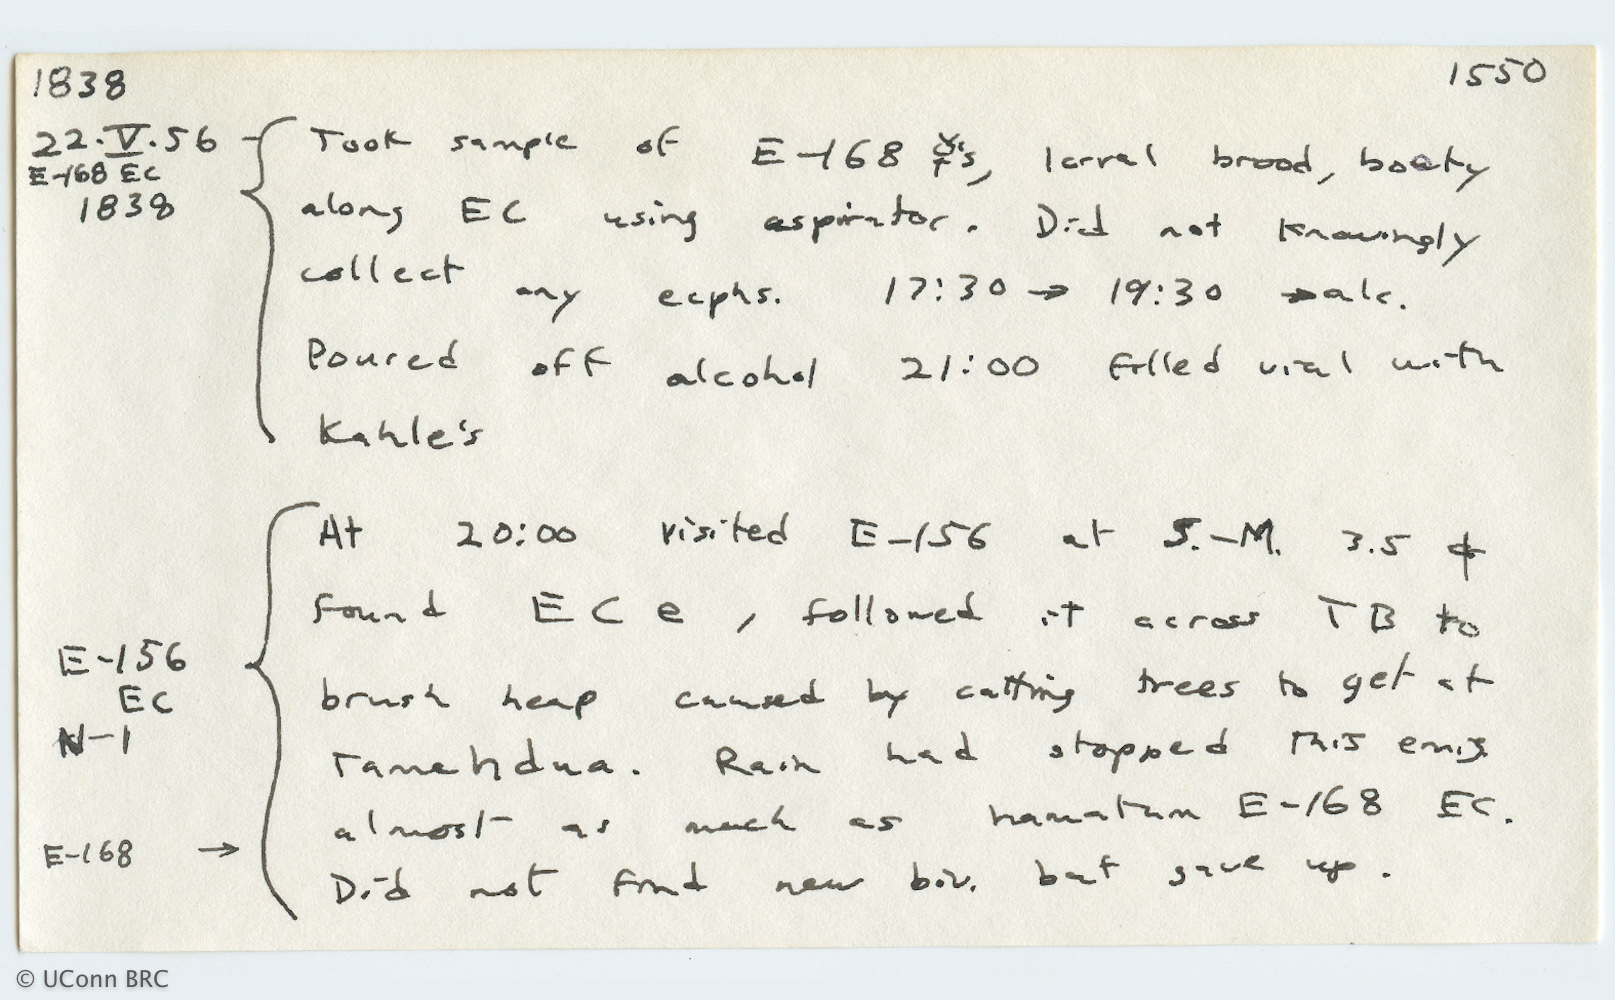 1838
1550
22.V.56
E-168 EC
1838
Took sample of E-168 ☿'s, larval brood, booty
along EC using aspirator. Did not knowingly
collect any ecphs. 17:30 → 19:30 → alc.
Poured off alcohol 21:00 filled vial with
Kahle's
E-156
EC
N-1
E-168 →
At 20:00 visited E-156 at S.-M. 3.5 &
found EC e, followed it across TB to
brush heap caused by cutting trees to get at
Tamandua. Rain had stopped this emig
almost as much as hamatum E-168 EC.
Did not find new biv. but gave up.
© UConn BRC